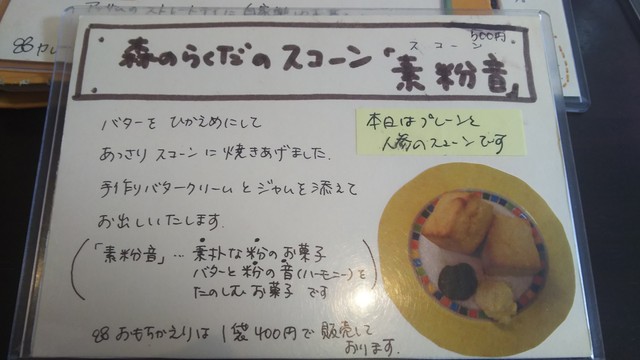 カレー
500円
スコーン
森のらくだのスコーン「素粉音」
バターを ひかえめにして
あっさり スコーンに焼きあげました.
手作りバタークリームとジャムを添えて
お出しいたします.
本日はプレーンと
人参のスコーンです
「素粉音」… 素朴な粉のお菓子
バターと粉の音(ハーモニー)を
たのしむ お菓子 です
おもちかえりは 1袋400円で 販売して
おります.